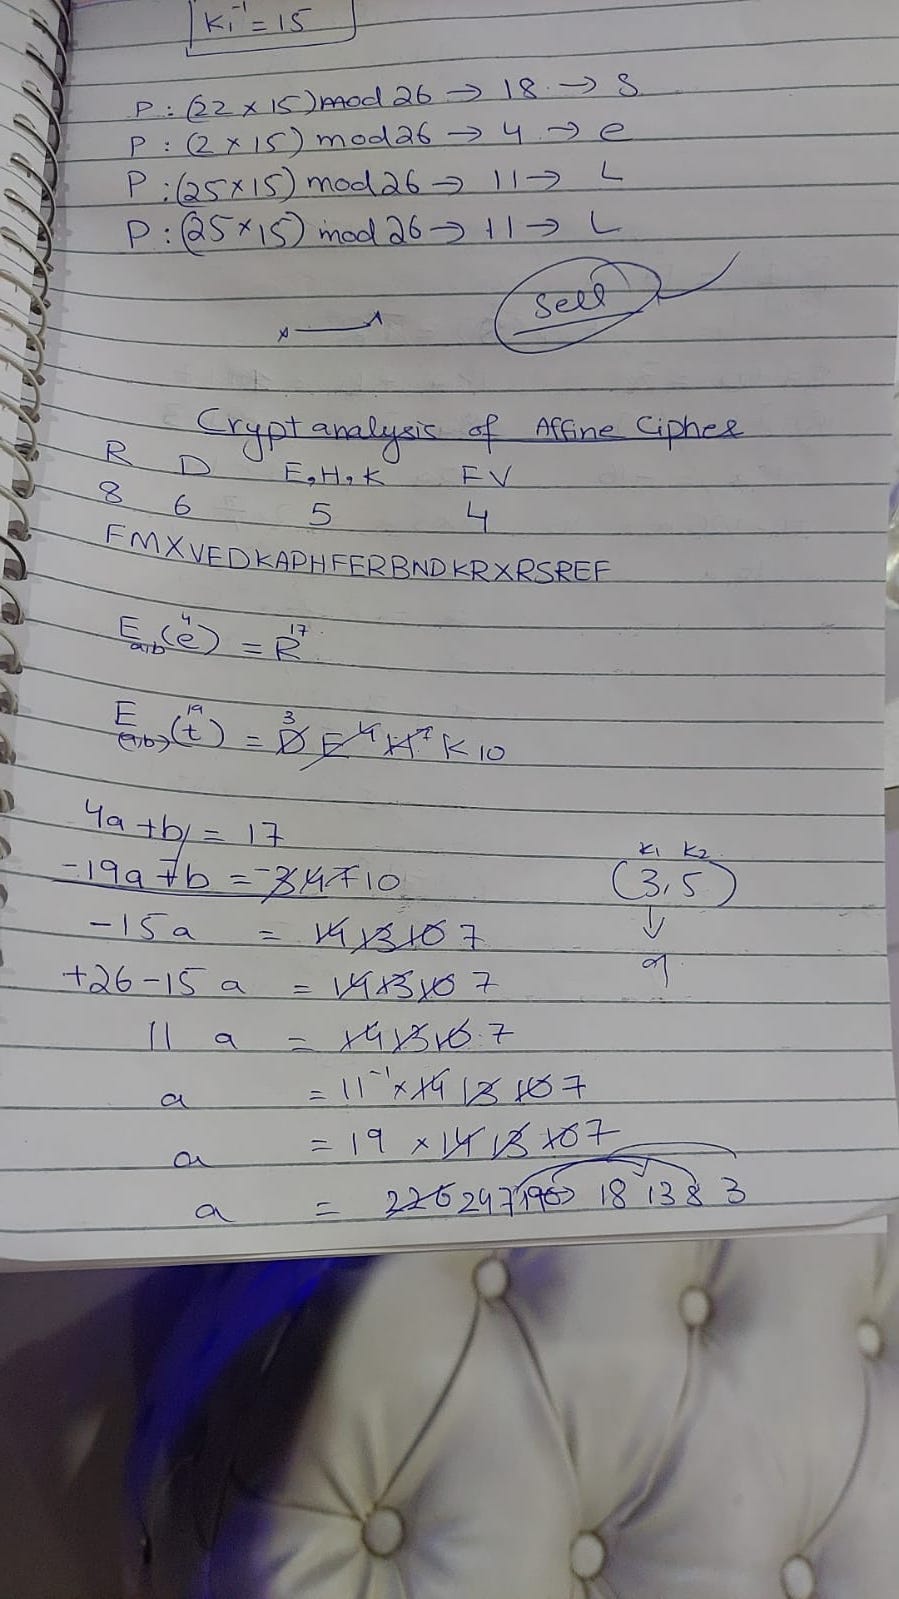 K₁⁻¹ = 15
P : (22 × 15) mod 26 → 18 → S
P : (2 × 15) mod 26 → 4 → e
P : (25 × 15) mod 26 → 11 → L
P : (25 × 15) mod 26 → 11 → L
Sell
Cryptanalysis of Affine Cipher
R D E, H, K F V
8 6 5 4
FMXVEDKAPHFERBNDKRXRSREF
4 17
E a,b (e) = R
19 3 4 7
E (a,b) (t) = D E H K 10
4a + b = 17
K1 K2
-19a + b = -3 4 7 10
(3, 5)
-15 a = 14 13 10 7
↓
+26 - 15 a = 14 13 10 7
9
11 a = 14 13 10 7
a = 11⁻¹ × 14 13 10 7
a = 19 × 14 13 10 7
a = 226 247 190 18 13 8 3